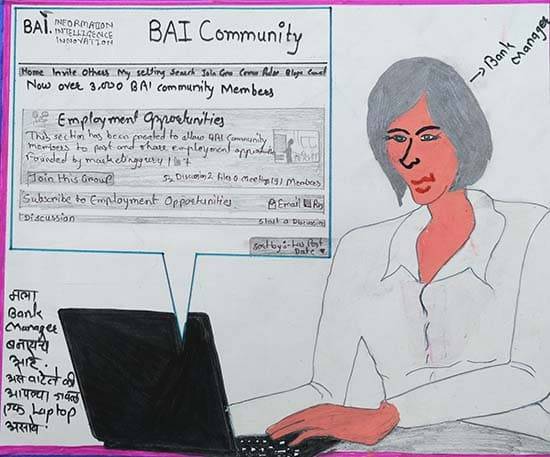 BAI. INFORMATION
INTELLIGENCE
INNOVATION
BAI Community
Home Invite Others My setting Search Join Gro
Now over 3,000 BAI community Members
Employment Opportunities
This section has been created to allow BAI Community
members to post and share employment
Founded by
Join this Group
Discussion 2 Files 0 Members
Subscribe to Employment Opportunities
Email
Discussion
Start a Discussion
Sort by:-
Date
→ Bank
Manager
मला
Bank
Manager
बनायचे
आहे.
असं वाटते की
आपल्या जवळ
एक Laptop
असावे.